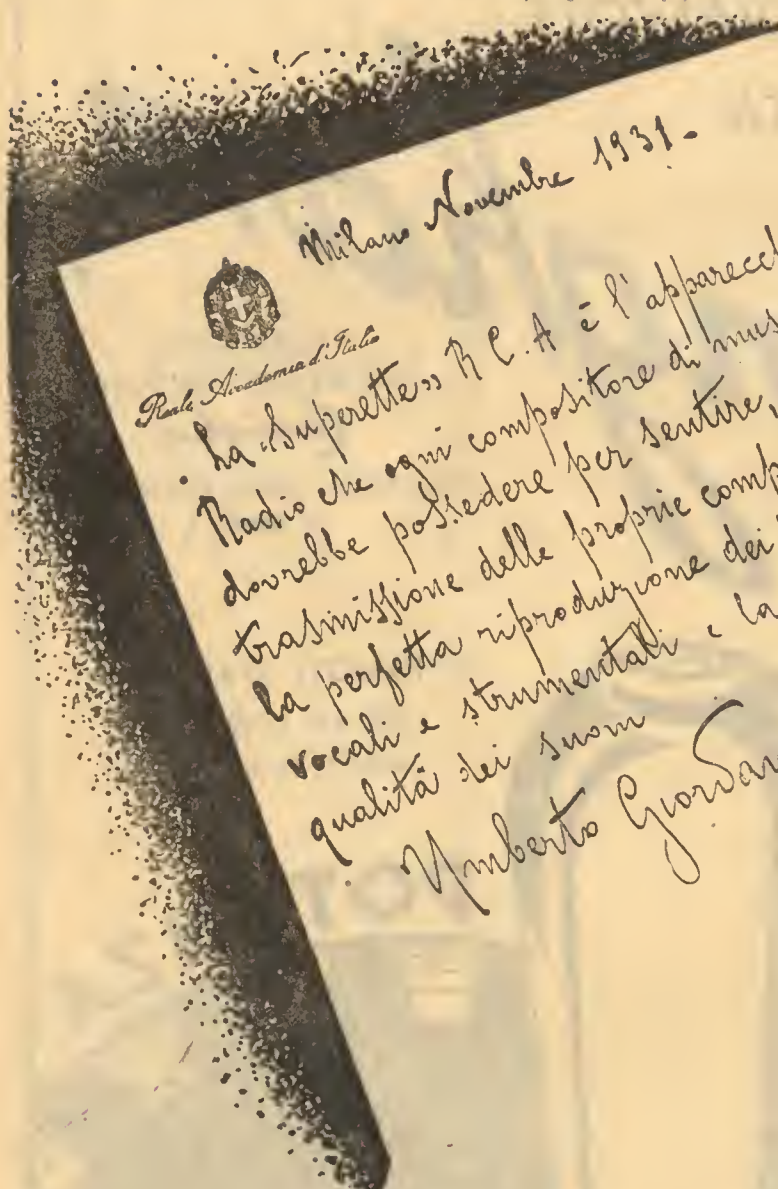 Milano Novembre 1931-
Reale Accademia d'Italia
La «Superette» R C.A è l'apparecch
Radio che ogni compositore di mus
dovrebbe possedere per sentire,
trasmissione delle proprie comp
la perfetta riproduzione dei
vocali e strumentali e la
qualità dei suoni
Umberto Giordan